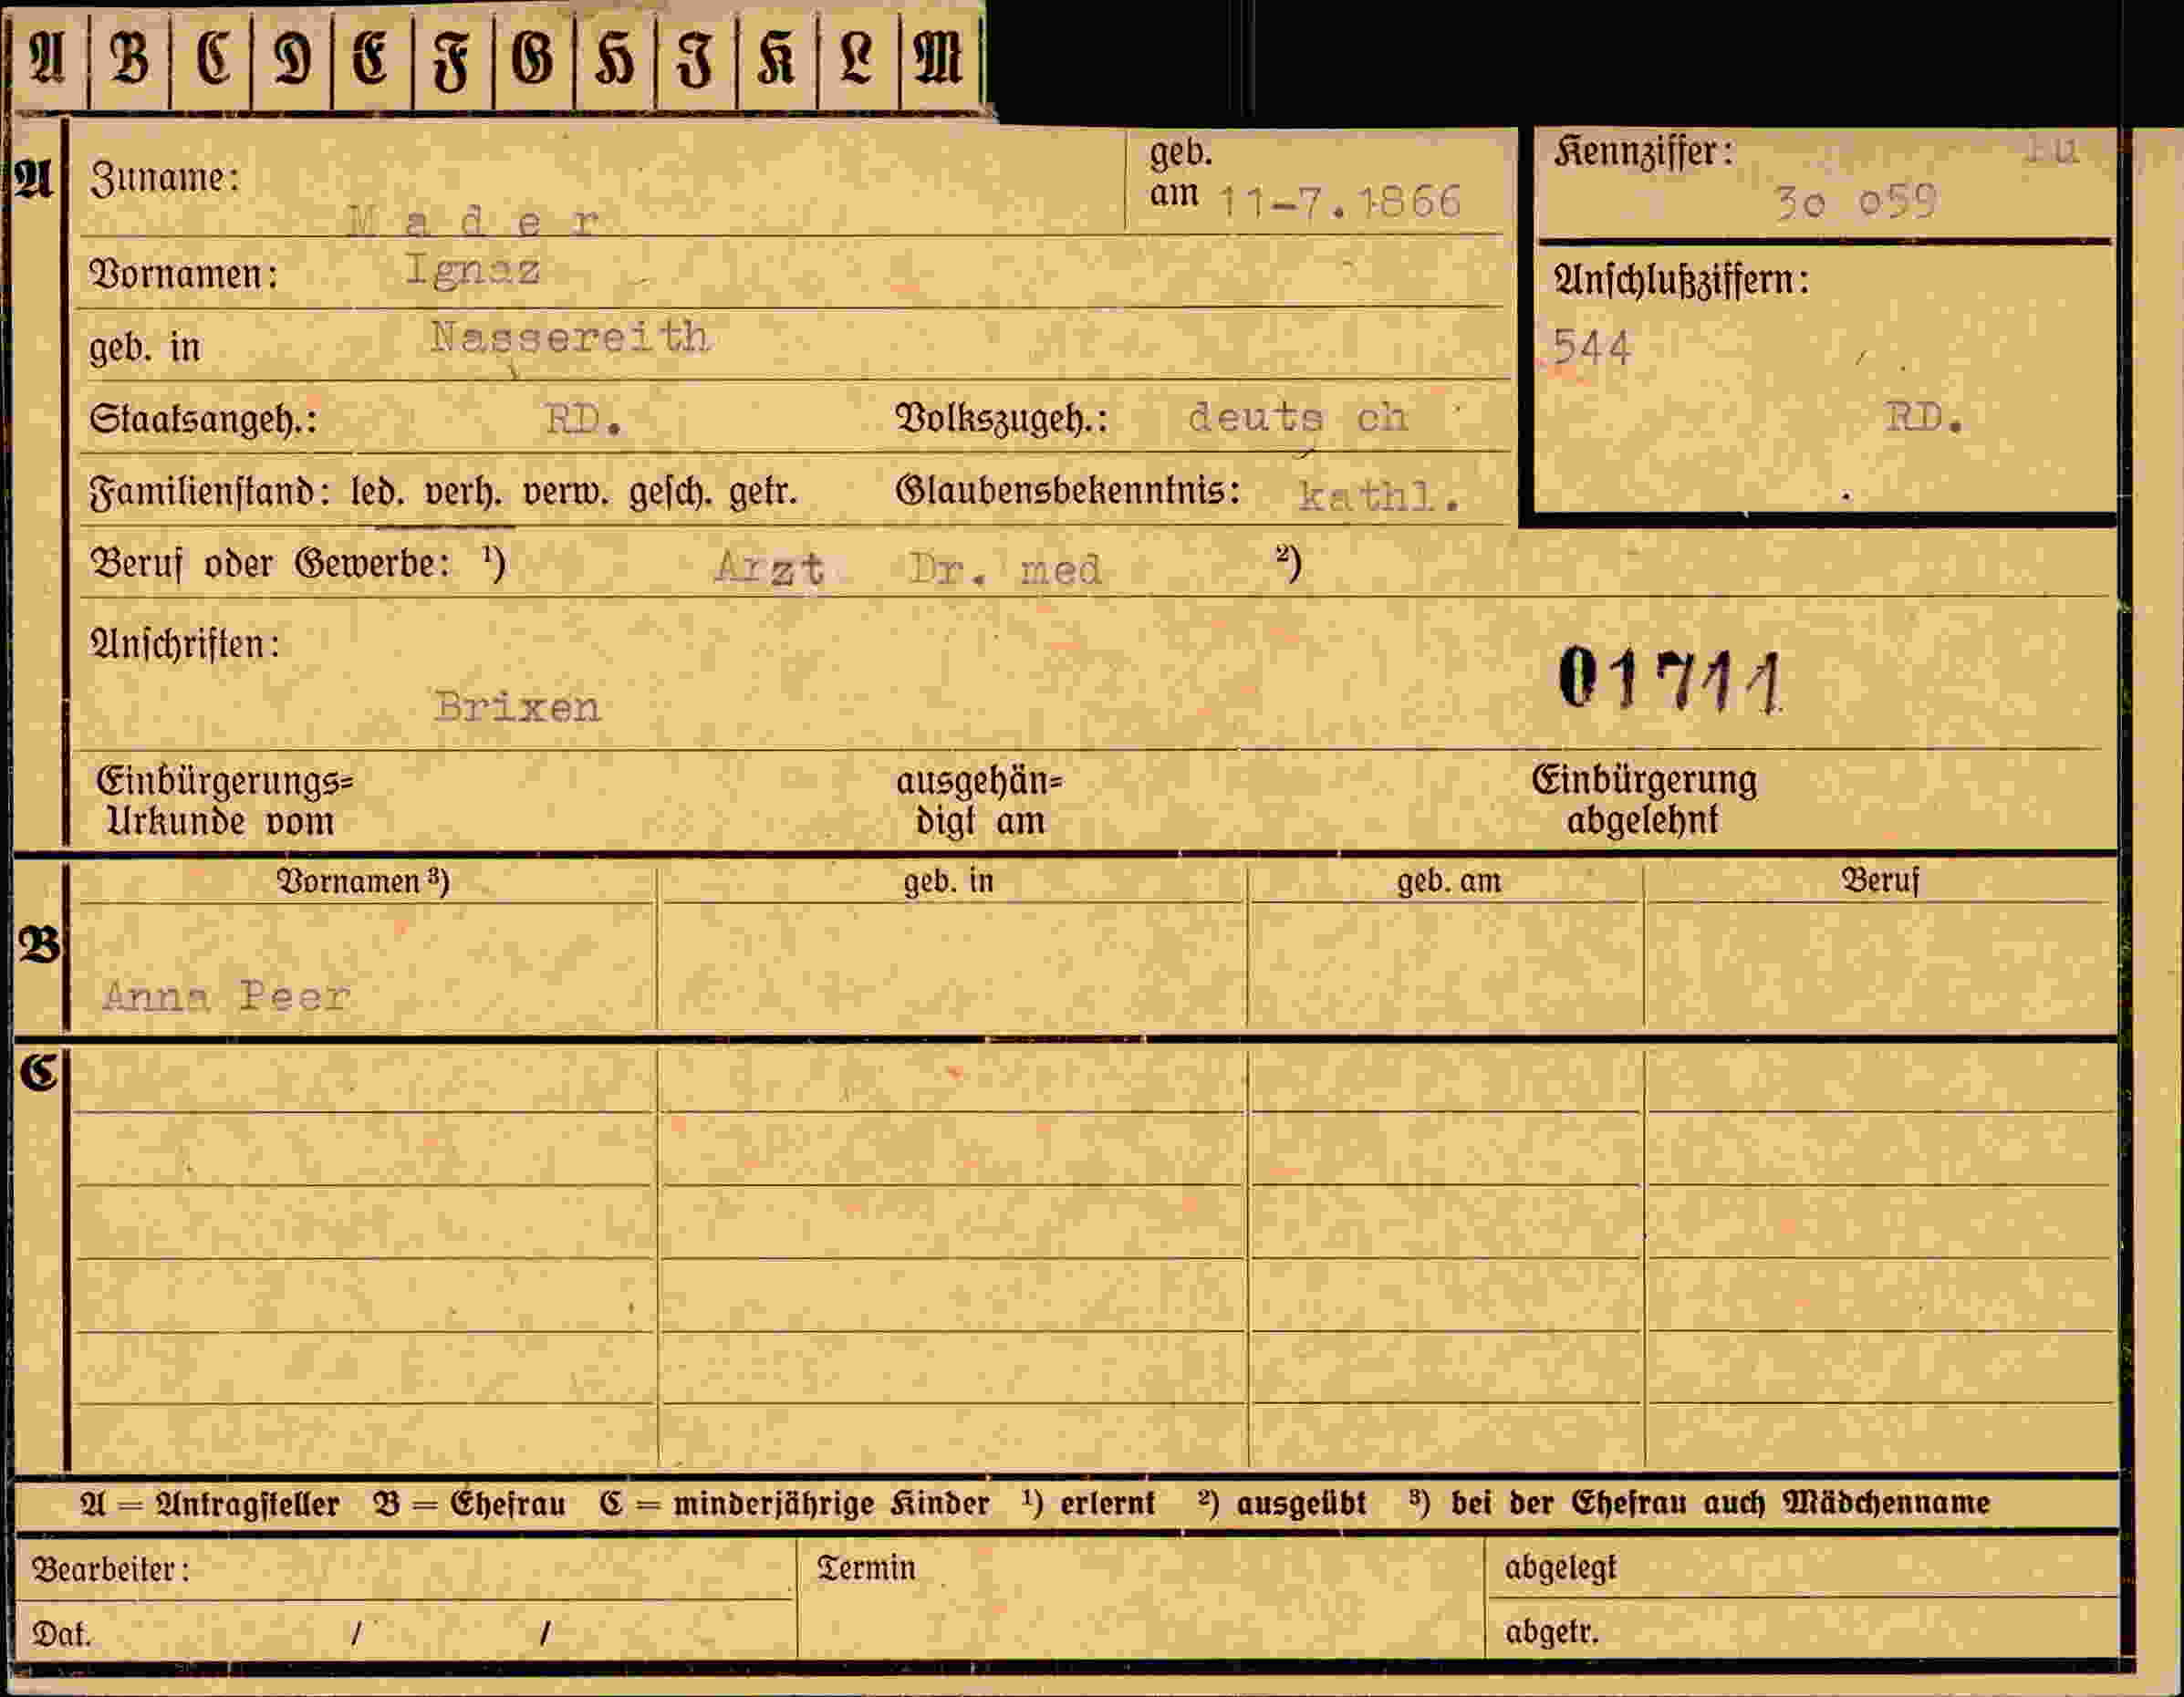 A B C D E F G H I K L M
A Zuname: Mader geb. am 11-7.1866
Kennziffer:
30 059
Vornamen: Ignaz
Anschlußziffern:
geb. in Nassereith
544
Staatsangeh.: RD. Volkszugeh.: deuts ch
RD.
Familienstand: led. verh. verw. gesch. getr. Glaubensbekenntnis: kathl.
Beruf oder Gewerbe: ¹) Arzt Dr. med ²)
Anschriften:
Brixen
01711
Einbürgerungs= ausgehän= Einbürgerung
Urkunde vom digt am abgelehnt
Vornamen ³) geb. in geb. am Beruf
B
Anna Peer
C
A = Antragsteller B = Ehefrau C = minderjährige Kinder ¹) erlernt ²) ausgeübt ³) bei der Ehefrau auch Mädchenname
Bearbeiter: Termin abgelegt
Dat. / / abgetr.